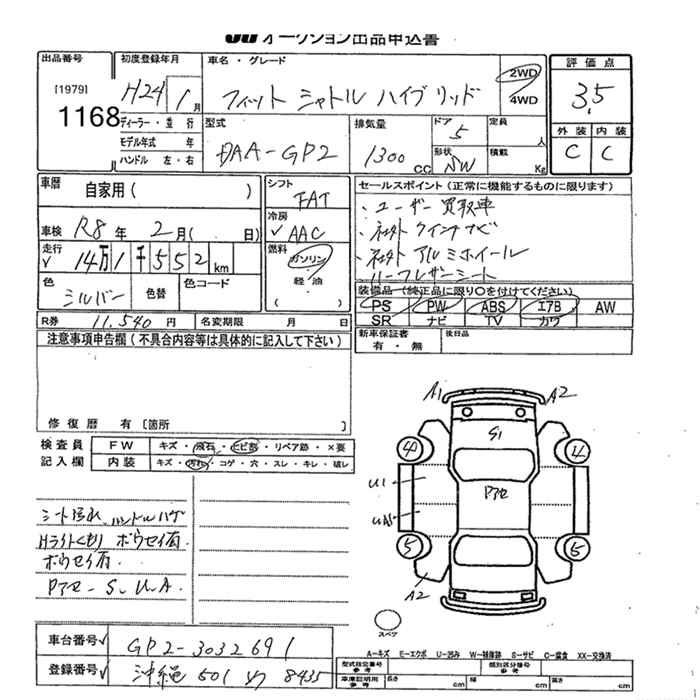 JU オークション出品申込書
出品番号
[1979]
1168
初度登録年月
H24年 1月
車名・グレード
フィット シャトル ハイブリッド
2WD
4WD
評価点
3.5
外装 内装
C C
ディーラー・並行
モデル年式 年
ハンドル 左・右
型式
DAA-GP2
排気量
1300 cc
ドア
5
形状
SW
定員
人
積載
Kg
車歴
自家用( )
車検 R8年 2月( 日)
走行
√ 14万1千552km
色
シルバー
色替
色コード
シフト
FAT
冷房
√ AAC
燃料
ガソリン
軽油
セールスポイント(正常に機能するものに限ります)
・ユーザー買取車
・社外 ナビ
・社外 アルミホイール
・ハーフレザーシート
装備品(純正品に限り○を付けてください)
PS PW ABS エアB AW
SR ナビ TV カワ
R券 11,540円
名変期限 月 日
新車保証書
有・無
後日品
注意事項申告欄(不具合内容等は具体的に記入して下さい)
修復歴 有〔箇所 〕
検査員
記入欄
FW キズ・飛石・ヒビ割・リペア跡・×要
内装 キズ・汚れ・コゲ・穴・スレ・キレ・破レ
シート汚れ、ハンドルハゲ
Hライトくもり ボウセイ有
ボウセイ有
Pアセ - S.U.A
A1 A2
S1
4 4
U1
Pアセ
5 5
A2
スペア
A-キズ E-エクボ U-凹み W-補修跡 S-サビ C-腐食 XX-交換済
車台番号√ GP2-3032691
登録番号√ 沖縄 501 8435
型式指定番号
参考
類別区分番号
参考
車庫証明用
参考
長さ cm
幅 cm
高さ cm